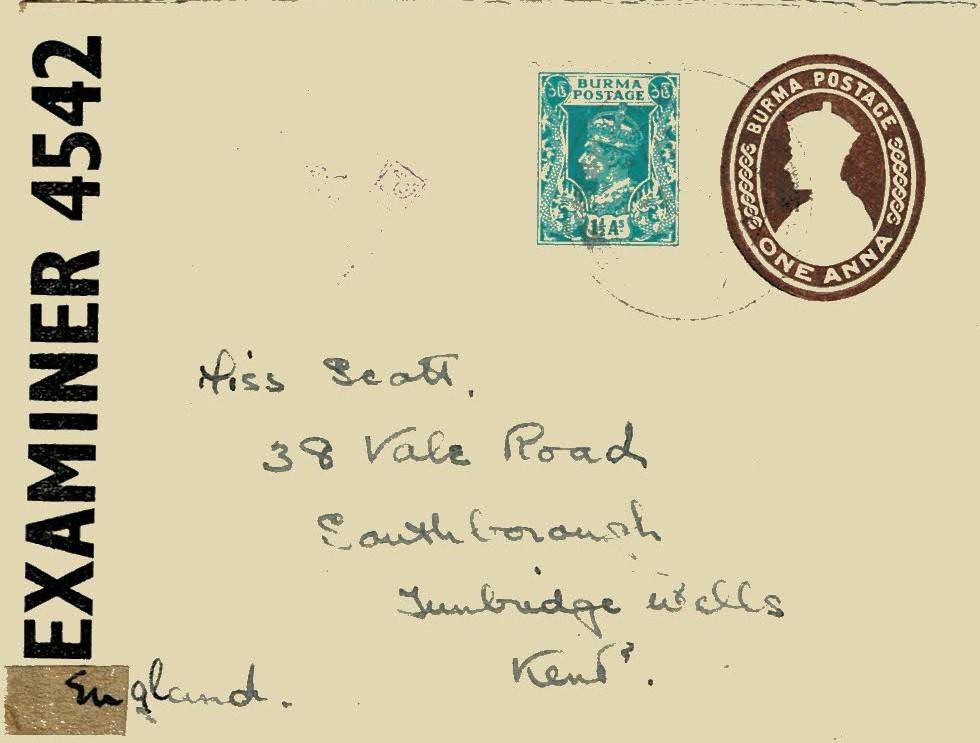 EXAMINER 4542
BURMA
POSTAGE
1½ As
BURMA POSTAGE
ONE ANNA
Miss Scott,
38 Vale Road
Southborough
Tunbridge Wells
Kent.
England.